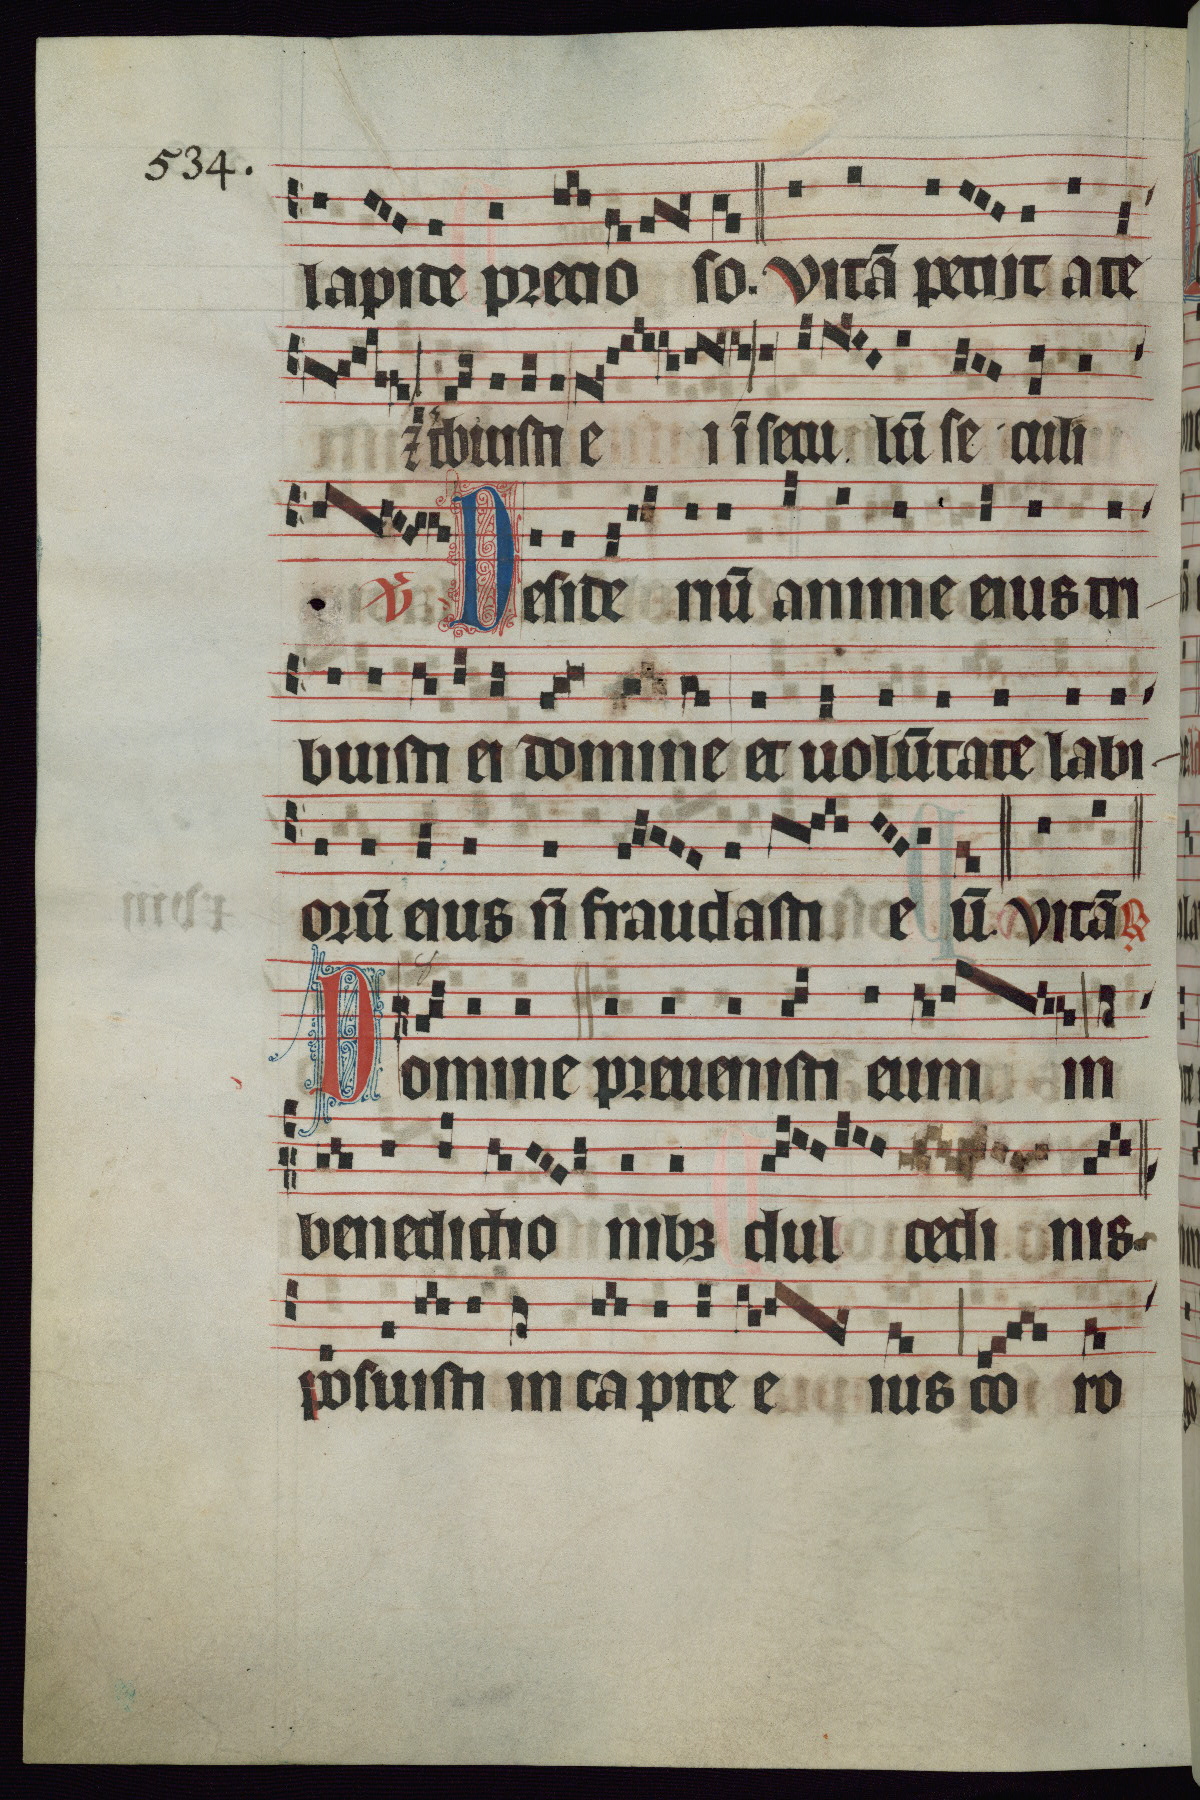 534.
lapide precio so. Vitã petijt a te
⁊ t͛buisti e i ĩ secu lũ se culi
℣ Deside riũ anime eius tri
buisti ei domine et uolũtate labi
orũ eius ñ fraudasti e ũ. Vitã ℟
Domine preuenisti eum in
benedictio nibꝫ dul cedi nis
posuisti in ca pite e ius co ro